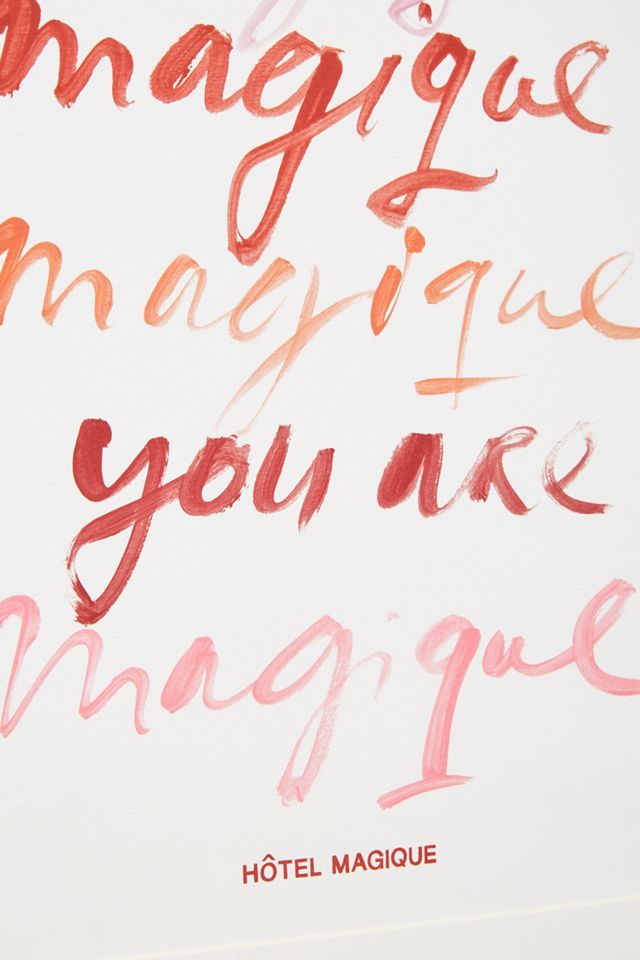 magique
magique
you are
magique
HÔTEL MAGIQUE